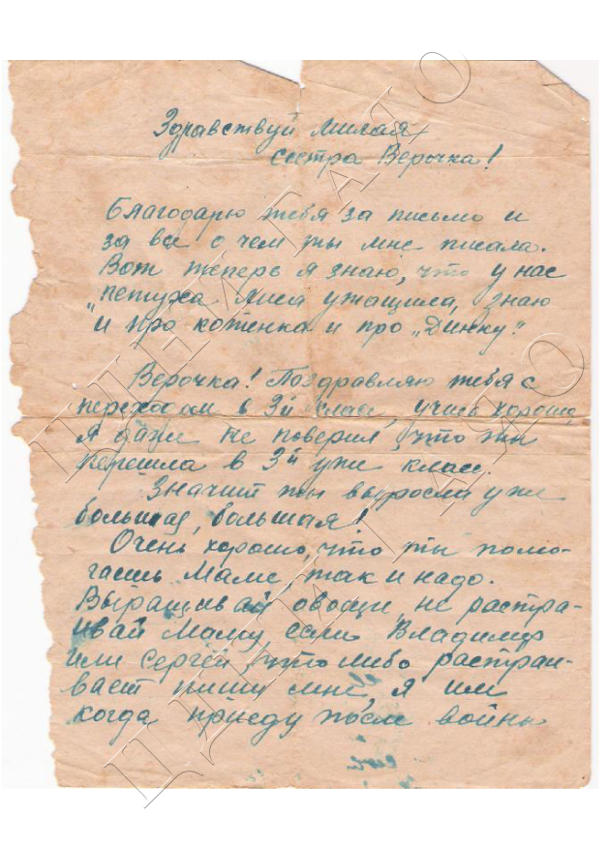 Здравствуй Милая
сестра Верочка!
Благодарю тебя за письмо и
за все о чем ты мне писала.
Вот теперь я знаю, что у нас
петуха лиса утащила, знаю
и про котенка и про „Динку".
Верочка! Поздравляю тебя с
переходом в 3й класс, учись хорошо,
Я даже не поверил, что ты
перешла в 3й уже класс.
Значит ты выросла уже
большая, большая!
Очень хорошо, что ты помо-
гаешь Маме, так и надо.
Выращивай овощи, не растра-
ивай Маму, если Владимир
или Сергей что либо растраи-
вает пиши мне, я им
когда приеду после войны